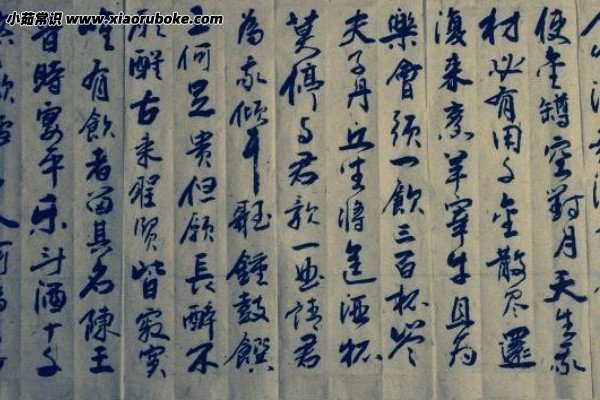 小茹常识 www.xiaoruboke.com
使金罇空對月天生我
材必有用千金散尽還
復来烹羊宰牛且为
樂會須一飲三百杯岑
夫子丹丘生将進酒杯
莫停与君歌一曲請君
為我傾耳聽鐘鼓饌
玉何足貴但願長醉不
願醒古来聖賢皆寂寞
唯有飲者留其名陳王
昔時宴平乐斗酒十千